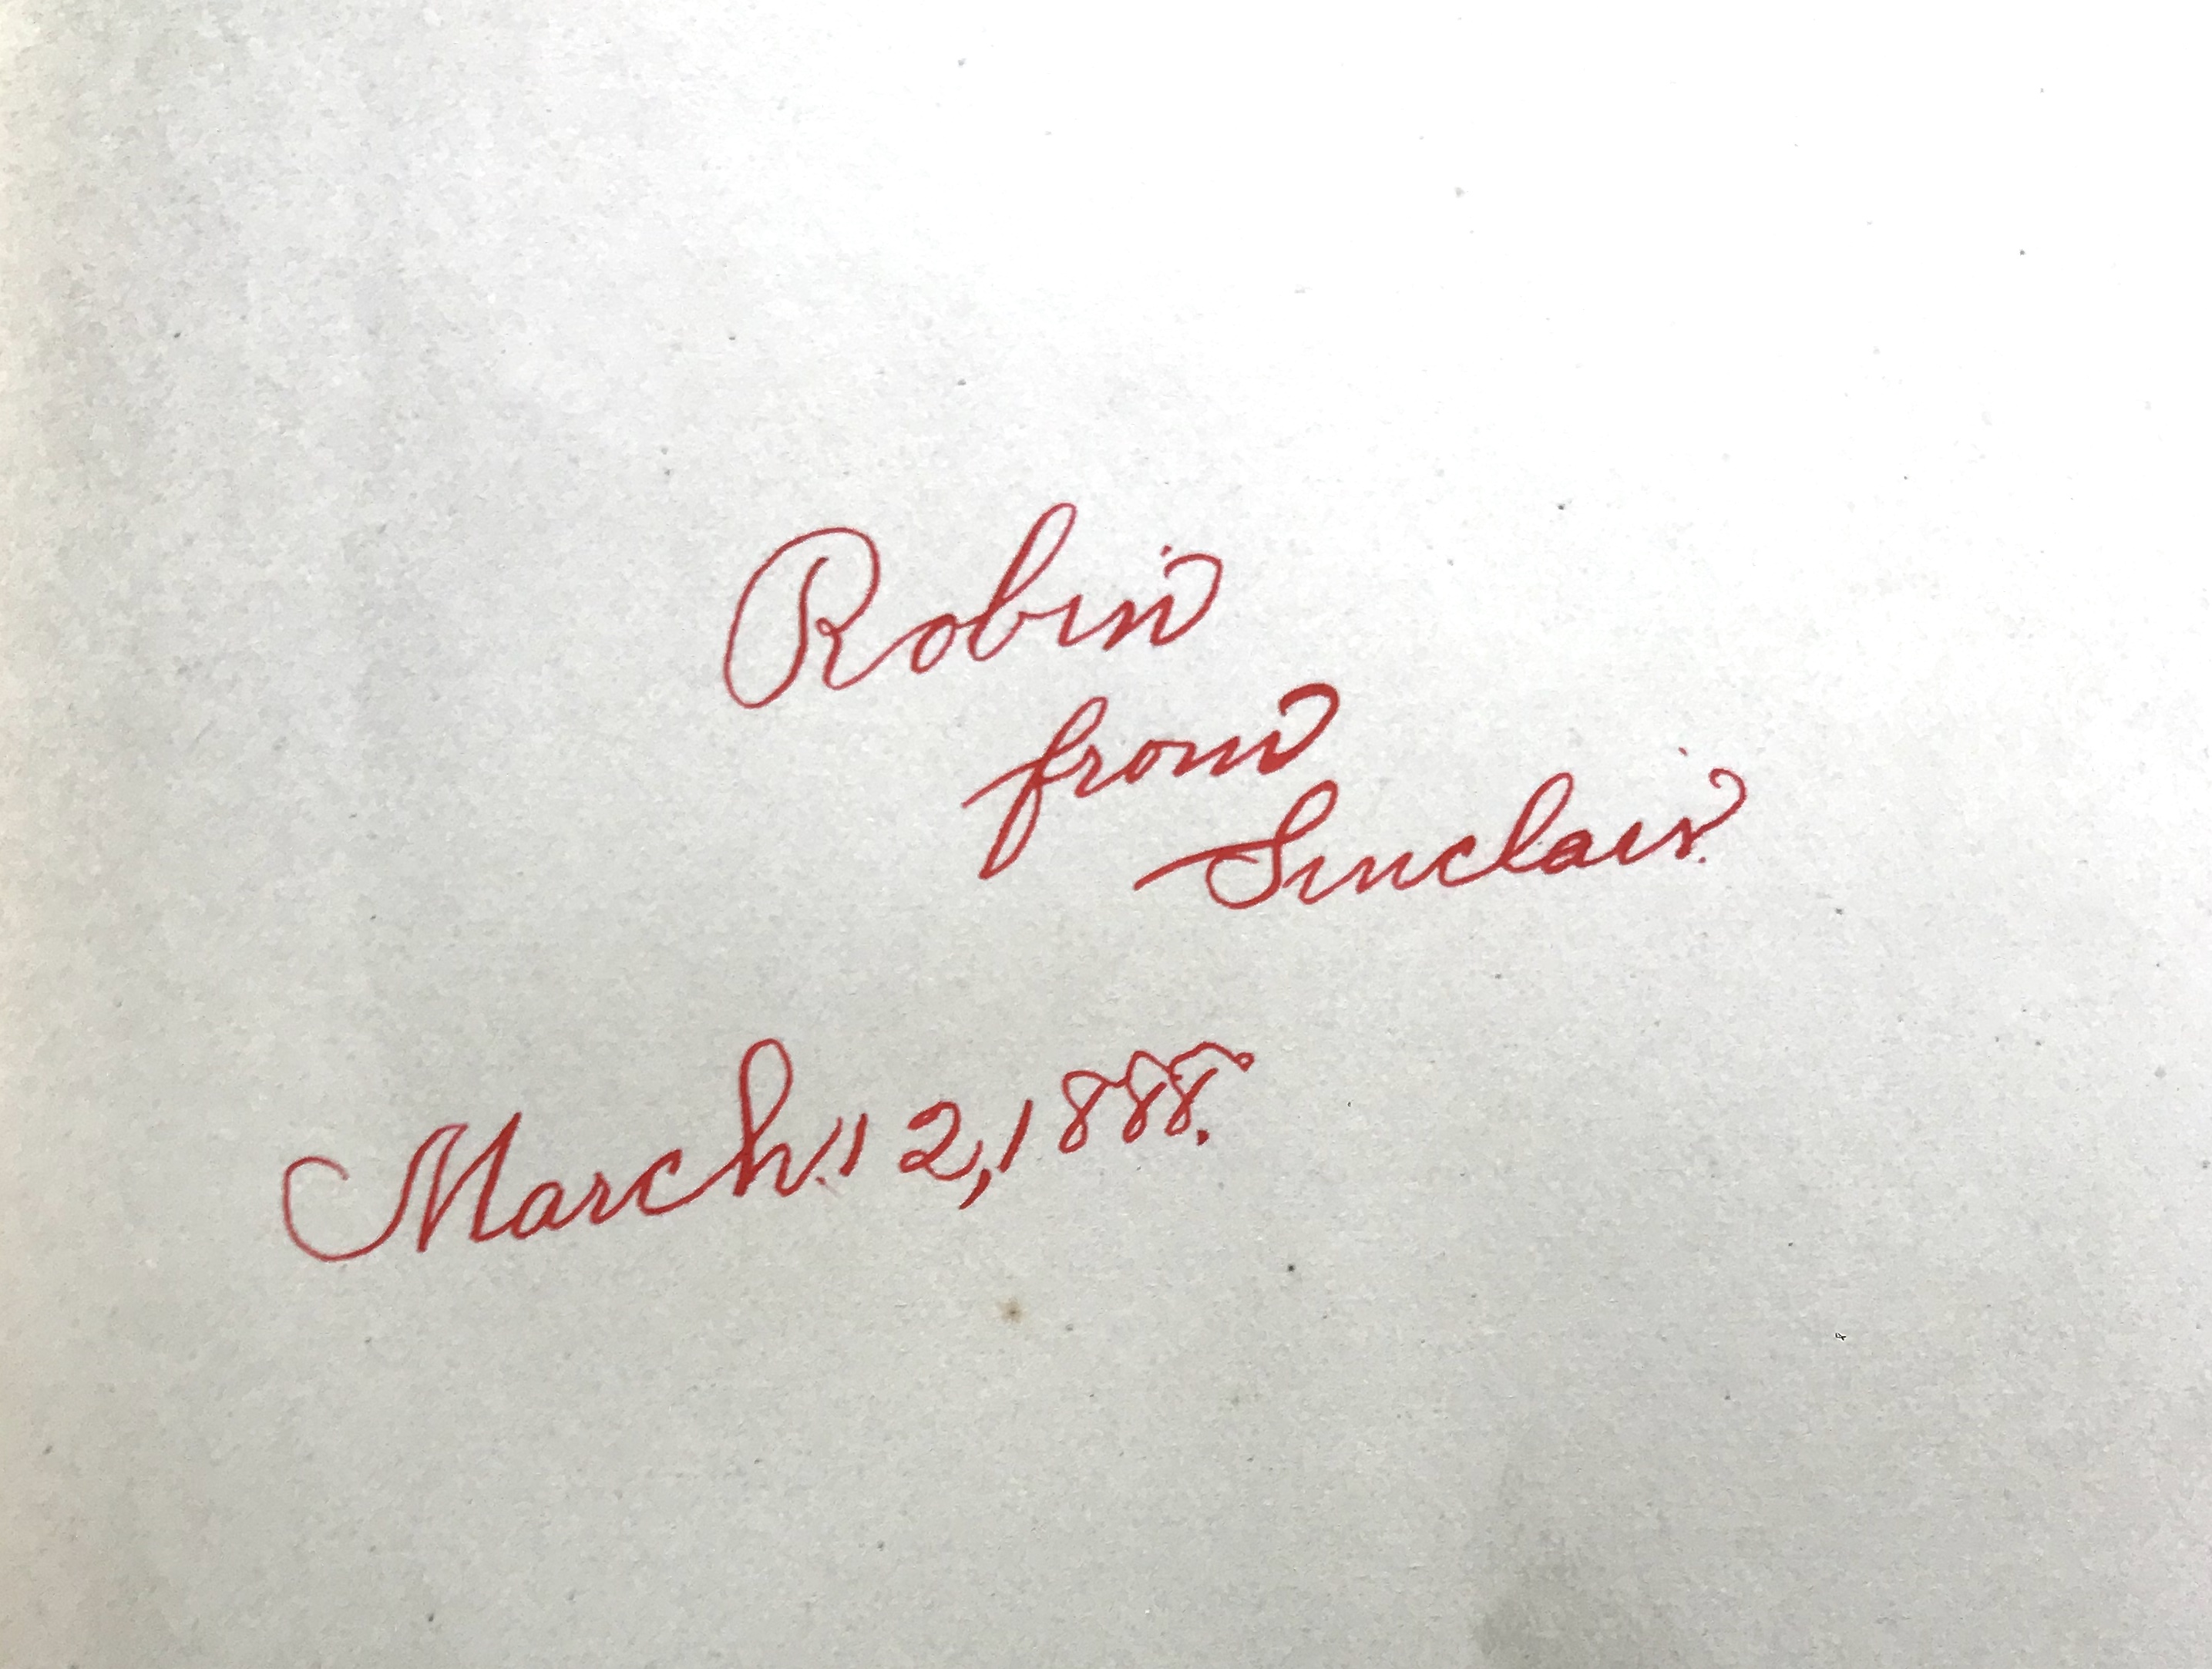 Robin
from
Sinclair.
March. 12, 1888.